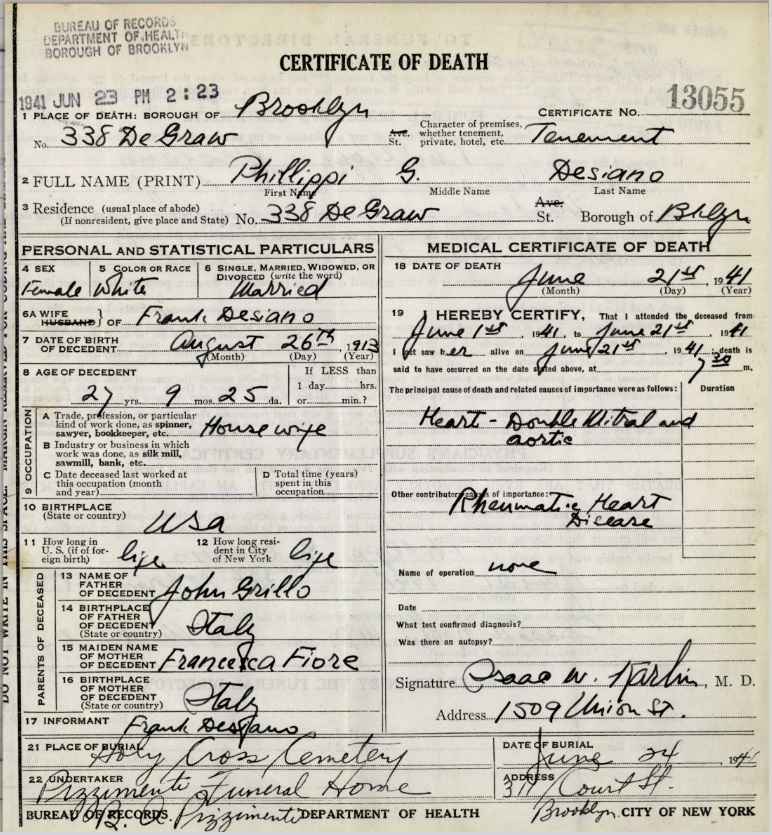 BUREAU OF RECORDS
DEPARTMENT OF HEALTH
BOROUGH OF BROOKLYN
CERTIFICATE OF DEATH
1941 JUN 23 PM 2:23
13055
1 PLACE OF DEATH: BOROUGH OF Brooklyn CERTIFICATE NO.
No. 338 DeGraw Ave. St. Character of premises, whether tenement, private, hotel, etc. Tenement
2 FULL NAME (PRINT) Phillippi G. Desiano
First Name Middle Name Last Name
3 Residence (usual place of abode) (If nonresident, give place and State) No. 338 DeGraw Ave. St. Borough of Bklyn
PERSONAL AND STATISTICAL PARTICULARS
4 SEX Female
5 COLOR OR RACE White
6 SINGLE, MARRIED, WIDOWED, OR DIVORCED (write the word) Married
6A WIFE HUSBAND } OF Frank Desiano
7 DATE OF BIRTH OF DECEDENT August 26th, 1913
(Month) (Day) (Year)
8 AGE OF DECEDENT 27 yrs. 9 mos. 25 da.
If LESS than 1 day hrs. or min.?
9 OCCUPATION
A Trade, profession, or particular kind of work done, as spinner, sawyer, bookkeeper, etc. Housewife
B Industry or business in which work was done, as silk mill, sawmill, bank, etc.
C Date deceased last worked at this occupation (month and year)
D Total time (years) spent in this occupation
10 BIRTHPLACE (State or country) USA
11 How long in U. S. (if of foreign birth) life
12 How long resident in City of New York life
PARENTS OF DECEASED
13 NAME OF FATHER OF DECEDENT John Grillo
14 BIRTHPLACE OF FATHER OF DECEDENT (State or country) Italy
15 MAIDEN NAME OF MOTHER OF DECEDENT Francesca Fiore
16 BIRTHPLACE OF MOTHER OF DECEDENT (State or country) Italy
17 INFORMANT Frank Desiano
MEDICAL CERTIFICATE OF DEATH
18 DATE OF DEATH June 21st, 1941
(Month) (Day) (Year)
19 I HEREBY CERTIFY, That I attended the deceased from
June 1st, 1941, to June 21st 1941
I last saw her alive on June 21st, 1941; death is
said to have occurred on the date stated above, at 7 30 m.
The principal cause of death and related causes of importance were as follows: Duration
Heart - Double Mitral and
aortic
Other contributory causes of importance:
Rheumatic Heart
Disease
Name of operation none
Date
What test confirmed diagnosis?
Was there an autopsy?
Signature Isaac W. Karlin, M. D.
Address 1509 Union St.
21 PLACE OF BURIAL Holy Cross Cemetery
DATE OF BURIAL June 24 1941
22 UNDERTAKER Pizzimenti Funeral Home
ADDRESS 317 Court St.
Brooklyn
Pizzimenti
BUREAU OF RECORDS DEPARTMENT OF HEALTH CITY OF NEW YORK